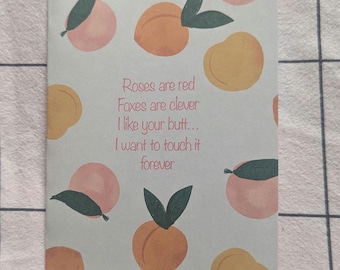 Roses are red
Foxes are clever
I like your butt...
I want to touch it
forever